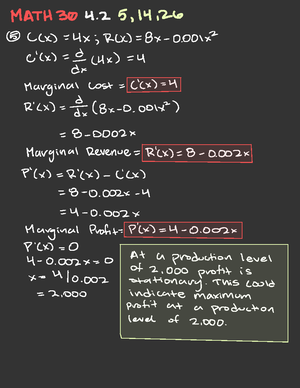 MATH 30 4.2 5,14,26
⑤ C(x) = 4x ; R(x) = 8x - 0.001x²
C'(x) = d/dx (4x) = 4
Marginal Cost = C'(x) = 4
R'(x) = d/dx (8x - 0.001x²)
= 8 - 0.002x
Marginal Revenue = R'(x) = 8 - 0.002x
P'(x) = R'(x) - C'(x)
= 8 - 0.002x - 4
= 4 - 0.002x
Marginal Profit = P'(x) = 4 - 0.002x
P'(x) = 0
4 - 0.002x = 0
x = 4/0.002
= 2,000
At a production level
of 2,000 profit is
stationary. This could
indicate maximum
profit at a production
level of 2,000.